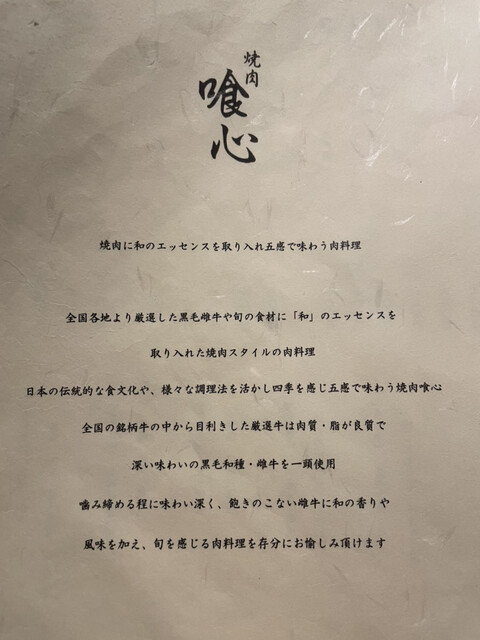 焼肉
喰心
焼肉に和のエッセンスを取り入れ五感で味わう肉料理
全国各地より厳選した黒毛雌牛や旬の食材に「和」のエッセンスを
取り入れた焼肉スタイルの肉料理
日本の伝統的な食文化や、様々な調理法を活かし四季を感じ五感で味わう焼肉喰心
全国の銘柄牛の中から目利きした厳選牛は肉質・脂が良質で
深い味わいの黒毛和種・雌牛を一頭使用
噛み締める程に味わい深く、飽きのこない雌牛に和の香りや
風味を加え、旬を感じる肉料理を存分にお愉しみ頂けます